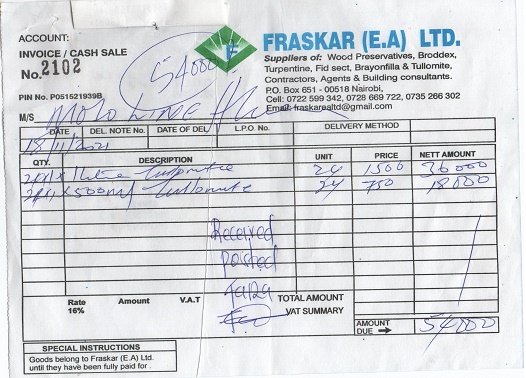 ACCOUNT:
INVOICE / CASH SALE
No. 2102
PIN No. P051521939B
54000
F
FRASKAR (E.A) LTD.
Suppliers of: Wood Preservatives, Broddex,
Turpentine, Fid sect, Brayonfilla & Tullomite,
Contractors, Agents & Building consultants.
P.O. Box 651 - 00518 Nairobi,
Cell: 0722 599 342, 0728 669 722, 0735 266 302
Email: fraskarealtd@gmail.com
M/S
DATE DEL. NOTE No. DATE OF DEL. L.P.O. No. DELIVERY METHOD
18/11/2021
QTY. DESCRIPTION UNIT PRICE NETT AMOUNT
24 1500 36000
500ml 24 750 18000
Received
posted
Rate Amount V.A.T TOTAL AMOUNT
16% VAT SUMMARY
AMOUNT DUE 54000
SPECIAL INSTRUCTIONS
Goods belong to Fraskar (E.A) Ltd.
until they have been fully paid for .